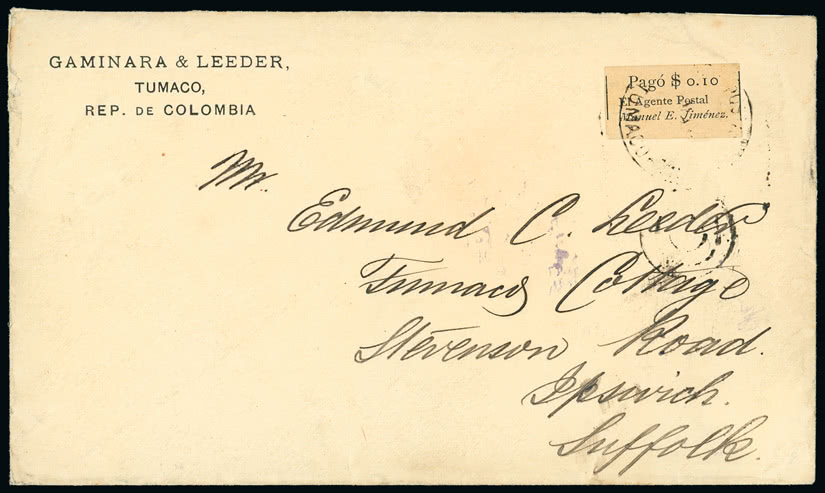 GAMINARA & LEEDER,
TUMACO,
REP. DE COLOMBIA
Pagó $ 0.10
El Agente Postal
Manuel E. Jiménez.
Mr
Edmund C. Leeder
Tumaco Cottage
Stevenson Road.
Ipswich.
Suffolk.